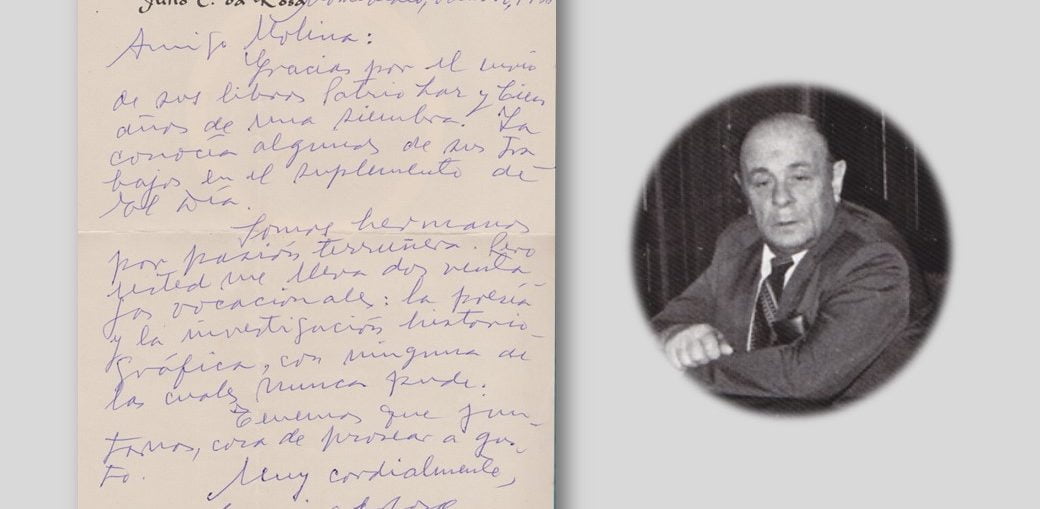 Julio C. da Rosa
Amigo Molina:
Gracias por el envío
de sus libros Patrio Lar y Cien
años de una siembra. Ya
conocía algunos de sus tra
bajos en el suplemento de
El Día.
Somos hermanos
por pasión terruñera. Pero
usted me lleva dos venta
jas vocacionales: la poesía
y la investigación historio-
gráfica, con ninguna de
las cuales nunca pude.
Tenemos que jun-
tarnos, cosa de prosear a gus-
to.
Muy cordialmente,